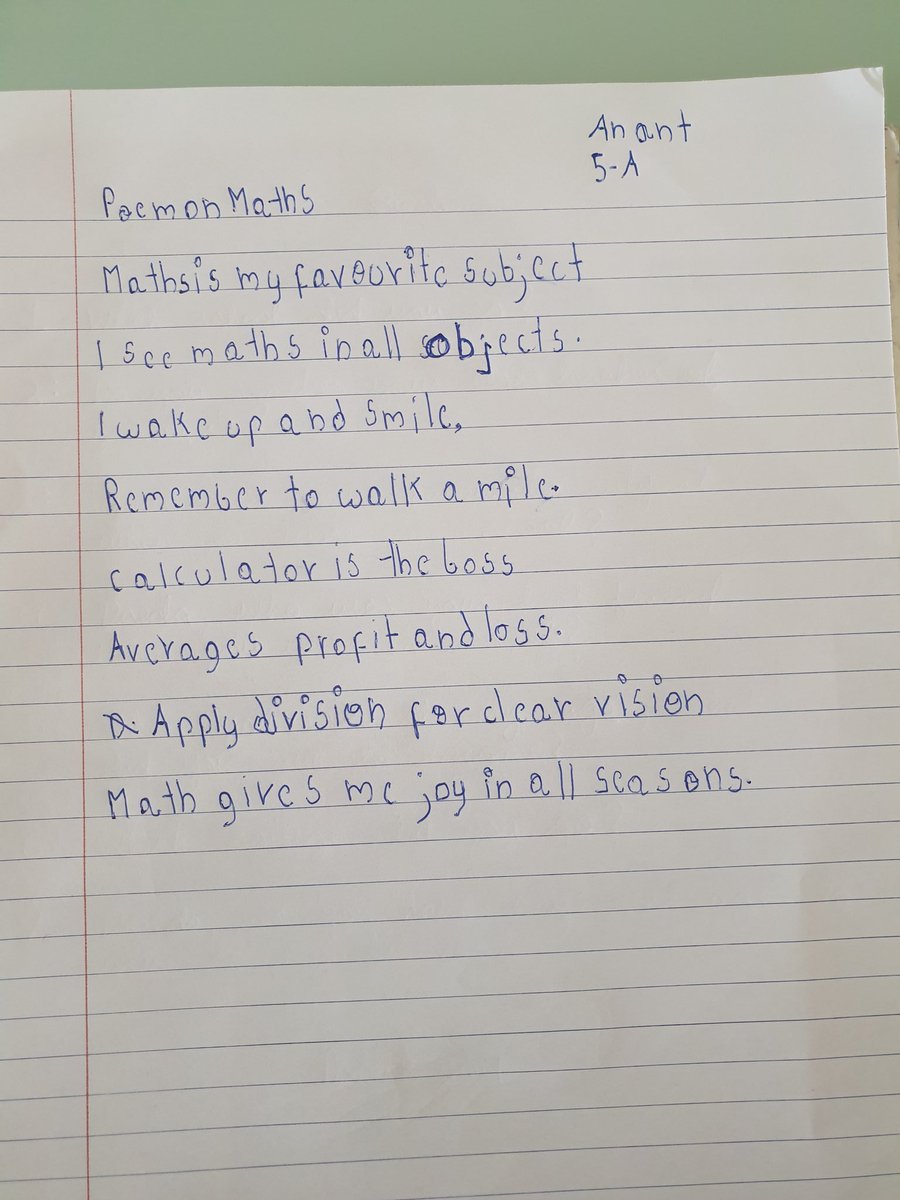 Anant
5-A
Poem on Maths
Maths is my favourite subject
I see maths in all objects.
I wake up and smile,
Remember to walk a mile.
calculator is the boss
Averages profit and loss.
Apply division for clear vision
Math gives me joy in all seasons.